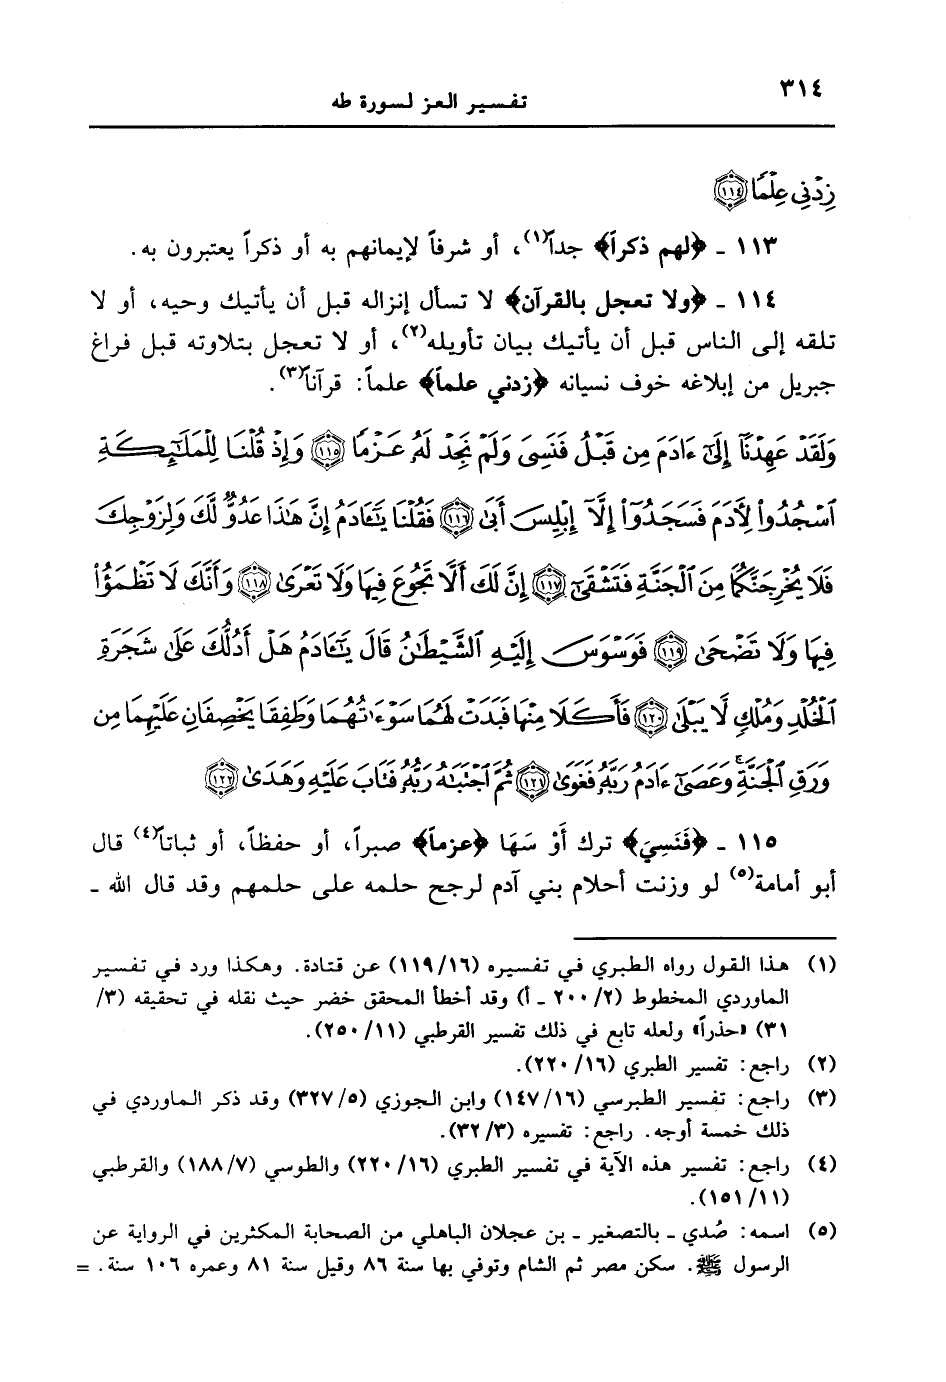 ٣١٤
تفسير العز لسورة طه
زِدْنِي عِلْمًا ﴿١١٤﴾
١١٣ ـ ﴿لهم ذكراً﴾ جداً(١)، أو شرفاً لإيمانهم به أو ذكراً يعتبرون به.
١١٤ ـ ﴿ولا تعجل بالقرآن﴾ لا تسأل إنزاله قبل أن يأتيك وحيه، أو لا
تلقه إلى الناس قبل أن يأتيك بيان تأويله(٢)، أو لا تعجل بتلاوته قبل فراغ
جبريل من إبلاغه خوف نسيانه ﴿زدني علماً﴾ علماً: قرآناً(٣).
وَلَقَدْ عَهِدْنَآ إِلَىٰٓ ءَادَمَ مِن قَبْلُ فَنَسِىَ وَلَمْ نَجِدْ لَهُۥ عَزْمًا ﴿١١٥﴾ وَإِذْ قُلْنَا لِلْمَلَٰٓئِكَةِ
ٱسْجُدُوا۟ لِءَادَمَ فَسَجَدُوٓا۟ إِلَّآ إِبْلِيسَ أَبَىٰ ﴿١١٦﴾ فَقُلْنَا يَٰٓـَٔادَمُ إِنَّ هَٰذَا عَدُوٌّ لَّكَ وَلِزَوْجِكَ
فَلَا يُخْرِجَنَّكُمَا مِنَ ٱلْجَنَّةِ فَتَشْقَىٰٓ ﴿١١٧﴾ إِنَّ لَكَ أَلَّا تَجُوعَ فِيهَا وَلَا تَعْرَىٰ ﴿١١٨﴾ وَأَنَّكَ لَا تَظْمَؤُا۟
فِيهَا وَلَا تَضْحَىٰ ﴿١١٩﴾ فَوَسْوَسَ إِلَيْهِ ٱلشَّيْطَٰنُ قَالَ يَٰٓـَٔادَمُ هَلْ أَدُلُّكَ عَلَىٰ شَجَرَةِ
ٱلْخُلْدِ وَمُلْكٍ لَّا يَبْلَىٰ ﴿١٢٠﴾ فَأَكَلَا مِنْهَا فَبَدَتْ لَهُمَا سَوْءَٰتُهُمَا وَطَفِقَا يَخْصِفَانِ عَلَيْهِمَا مِن
وَرَقِ ٱلْجَنَّةِ ۚ وَعَصَىٰٓ ءَادَمُ رَبَّهُۥ فَغَوَىٰ ﴿١٢١﴾ ثُمَّ ٱجْتَبَٰهُ رَبُّهُۥ فَتَابَ عَلَيْهِ وَهَدَىٰ ﴿١٢٢﴾
١١٥ ـ ﴿فَنَسِيَ﴾ ترك أَوْ سَهَا ﴿عزماً﴾ صبراً، أو حفظاً، أو ثباتاً(٤) قال
أبو أمامة(٥) لو وزنت أحلام بني آدم لرجح حلمه على حلمهم وقد قال الله ـ
(١) هذا القول رواه الطبري في تفسيره (١١٩/١٦) عن قتادة. وهكذا ورد في تفسير
الماوردي المخطوط (٢٠٠/٢ ـ أ) وقد أخطأ المحقق خضر حيث نقله في تحقيقه (٣/
٣١) «حذراً» ولعله تابع في ذلك تفسير القرطبي (٢٥٠/١١).
(٢) راجع: تفسير الطبري (٢٢٠/١٦).
(٣) راجع: تفسير الطبرسي (١٤٧/١٦) وابن الجوزي (٣٢٧/٥) وقد ذكر الماوردي في
ذلك خمسة أوجه. راجع: تفسيره (٣٢/٣).
(٤) راجع: تفسير هذه الآية في تفسير الطبري (٢٢٠/١٦) والطوسي (١٨٨/٧) والقرطبي
(١٥١/١١).
(٥) اسمه: صُدي ـ بالتصغير ـ بن عجلان الباهلي من الصحابة المكثرين في الرواية عن
الرسول ﷺ. سكن مصر ثم الشام وتوفي بها سنة ٨٦ وقيل سنة ٨١ وعمره ١٠٦ سنة. =